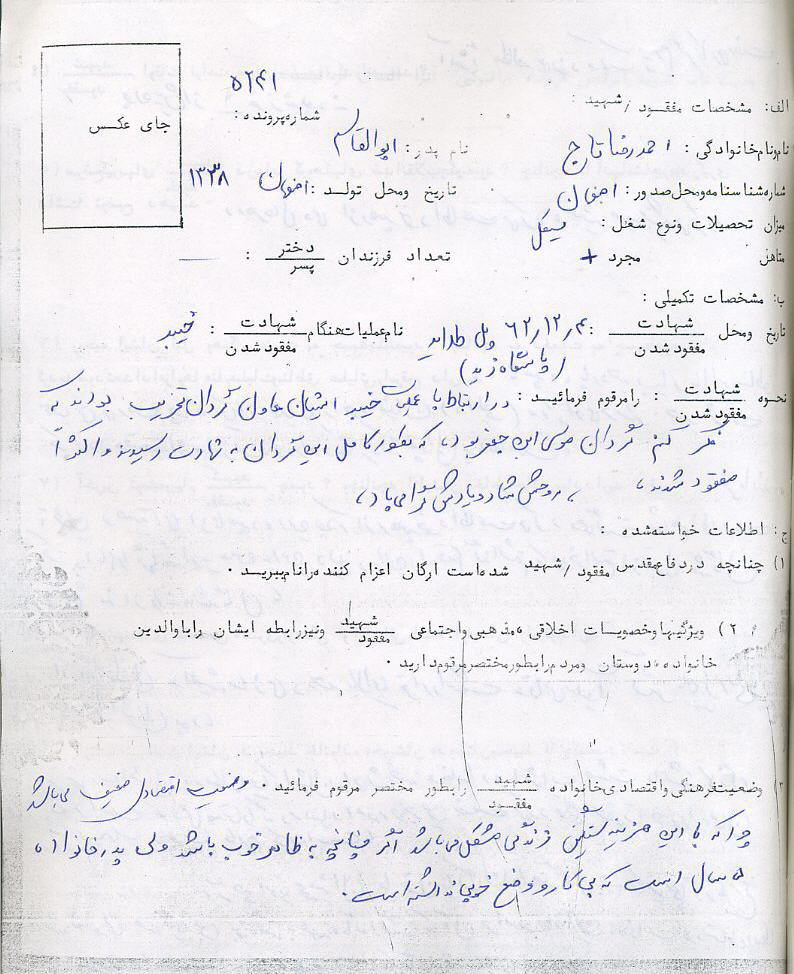 ۵۲۴۱
جای عکس
الف: مشخصات مفقود/شهید :
شماره پرونده :
نام ونام خانوادگی: احمدرضا تاج نام پدر: ابوالقاسم
شماره شناسنامه ومحل صدور: اصفهان تاریخ ومحل تولد: اصفهان ۱۳۳۸
میزان تحصیلات ونوع شغل:
متاهل مجرد + تعداد فرزندان دختر/پسر :
ب: مشخصات تکمیلی :
تاریخ ومحل شهادت/مفقودشدن : ۶۲/۱۲/۴ پل طلائیه نام عملیات هنگام شهادت/مفقودشدن : خیبر
(پاسگاه زید)
نحوه شهادت/مفقودشدن : رامرقوم فرمائید : در ارتباط با عملیات خیبر ایشان معاون گردان تخریب بودند که
فکر کنم گردان موسی ابن جعفر بود، که بطور کامل این گردان به شهادت رسیدند و اکثراً
مفقود شدند، روحش شاد و یادش گرامی باد،
ج: اطلاعات خواسته شده :
۱) چنانچه دردفاع مقدس مفقود/شهید شده است ارگان اعزام کننده رانام ببرید .
۲) ویژگیها وخصویات اخلاقی ،مذهبی واجتماعی شهید/مفقود ونیزرابطه ایشان راباوالدین
خانواده،دوستان ومردم رابطور مختصر مرقوم دارید .
۳) وضعیت فرهنگی واقتصادی خانواده شهید/مفقود رابطور مختصر مرقوم فرمائید . وضعیت اقتصادی ضعیف می‌باشد
چرا که با این هزینه سنگین زندگی مشکل می‌باشد اگر چنانچه به ظاهر خوب باشد ولی پدر خانواده
۵ سال است که بی‌کار و وضع خوبی نداشته است.